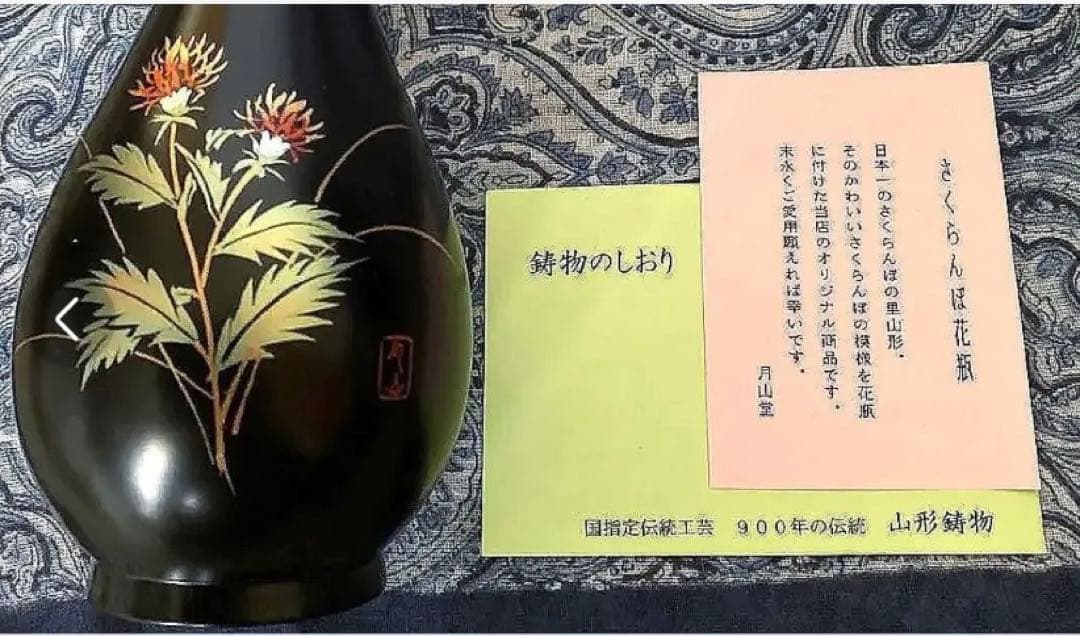 さくらんぼ花瓶
日本一のさくらんぼの里山形.
そのかわいいさくらんぼの模様を花瓶
に付けた当店のオリジナル商品です.
末永くご愛用願えれば幸いです.
月山堂
鋳物のしおり
国指定伝統工芸 900年の伝統 山形鋳物